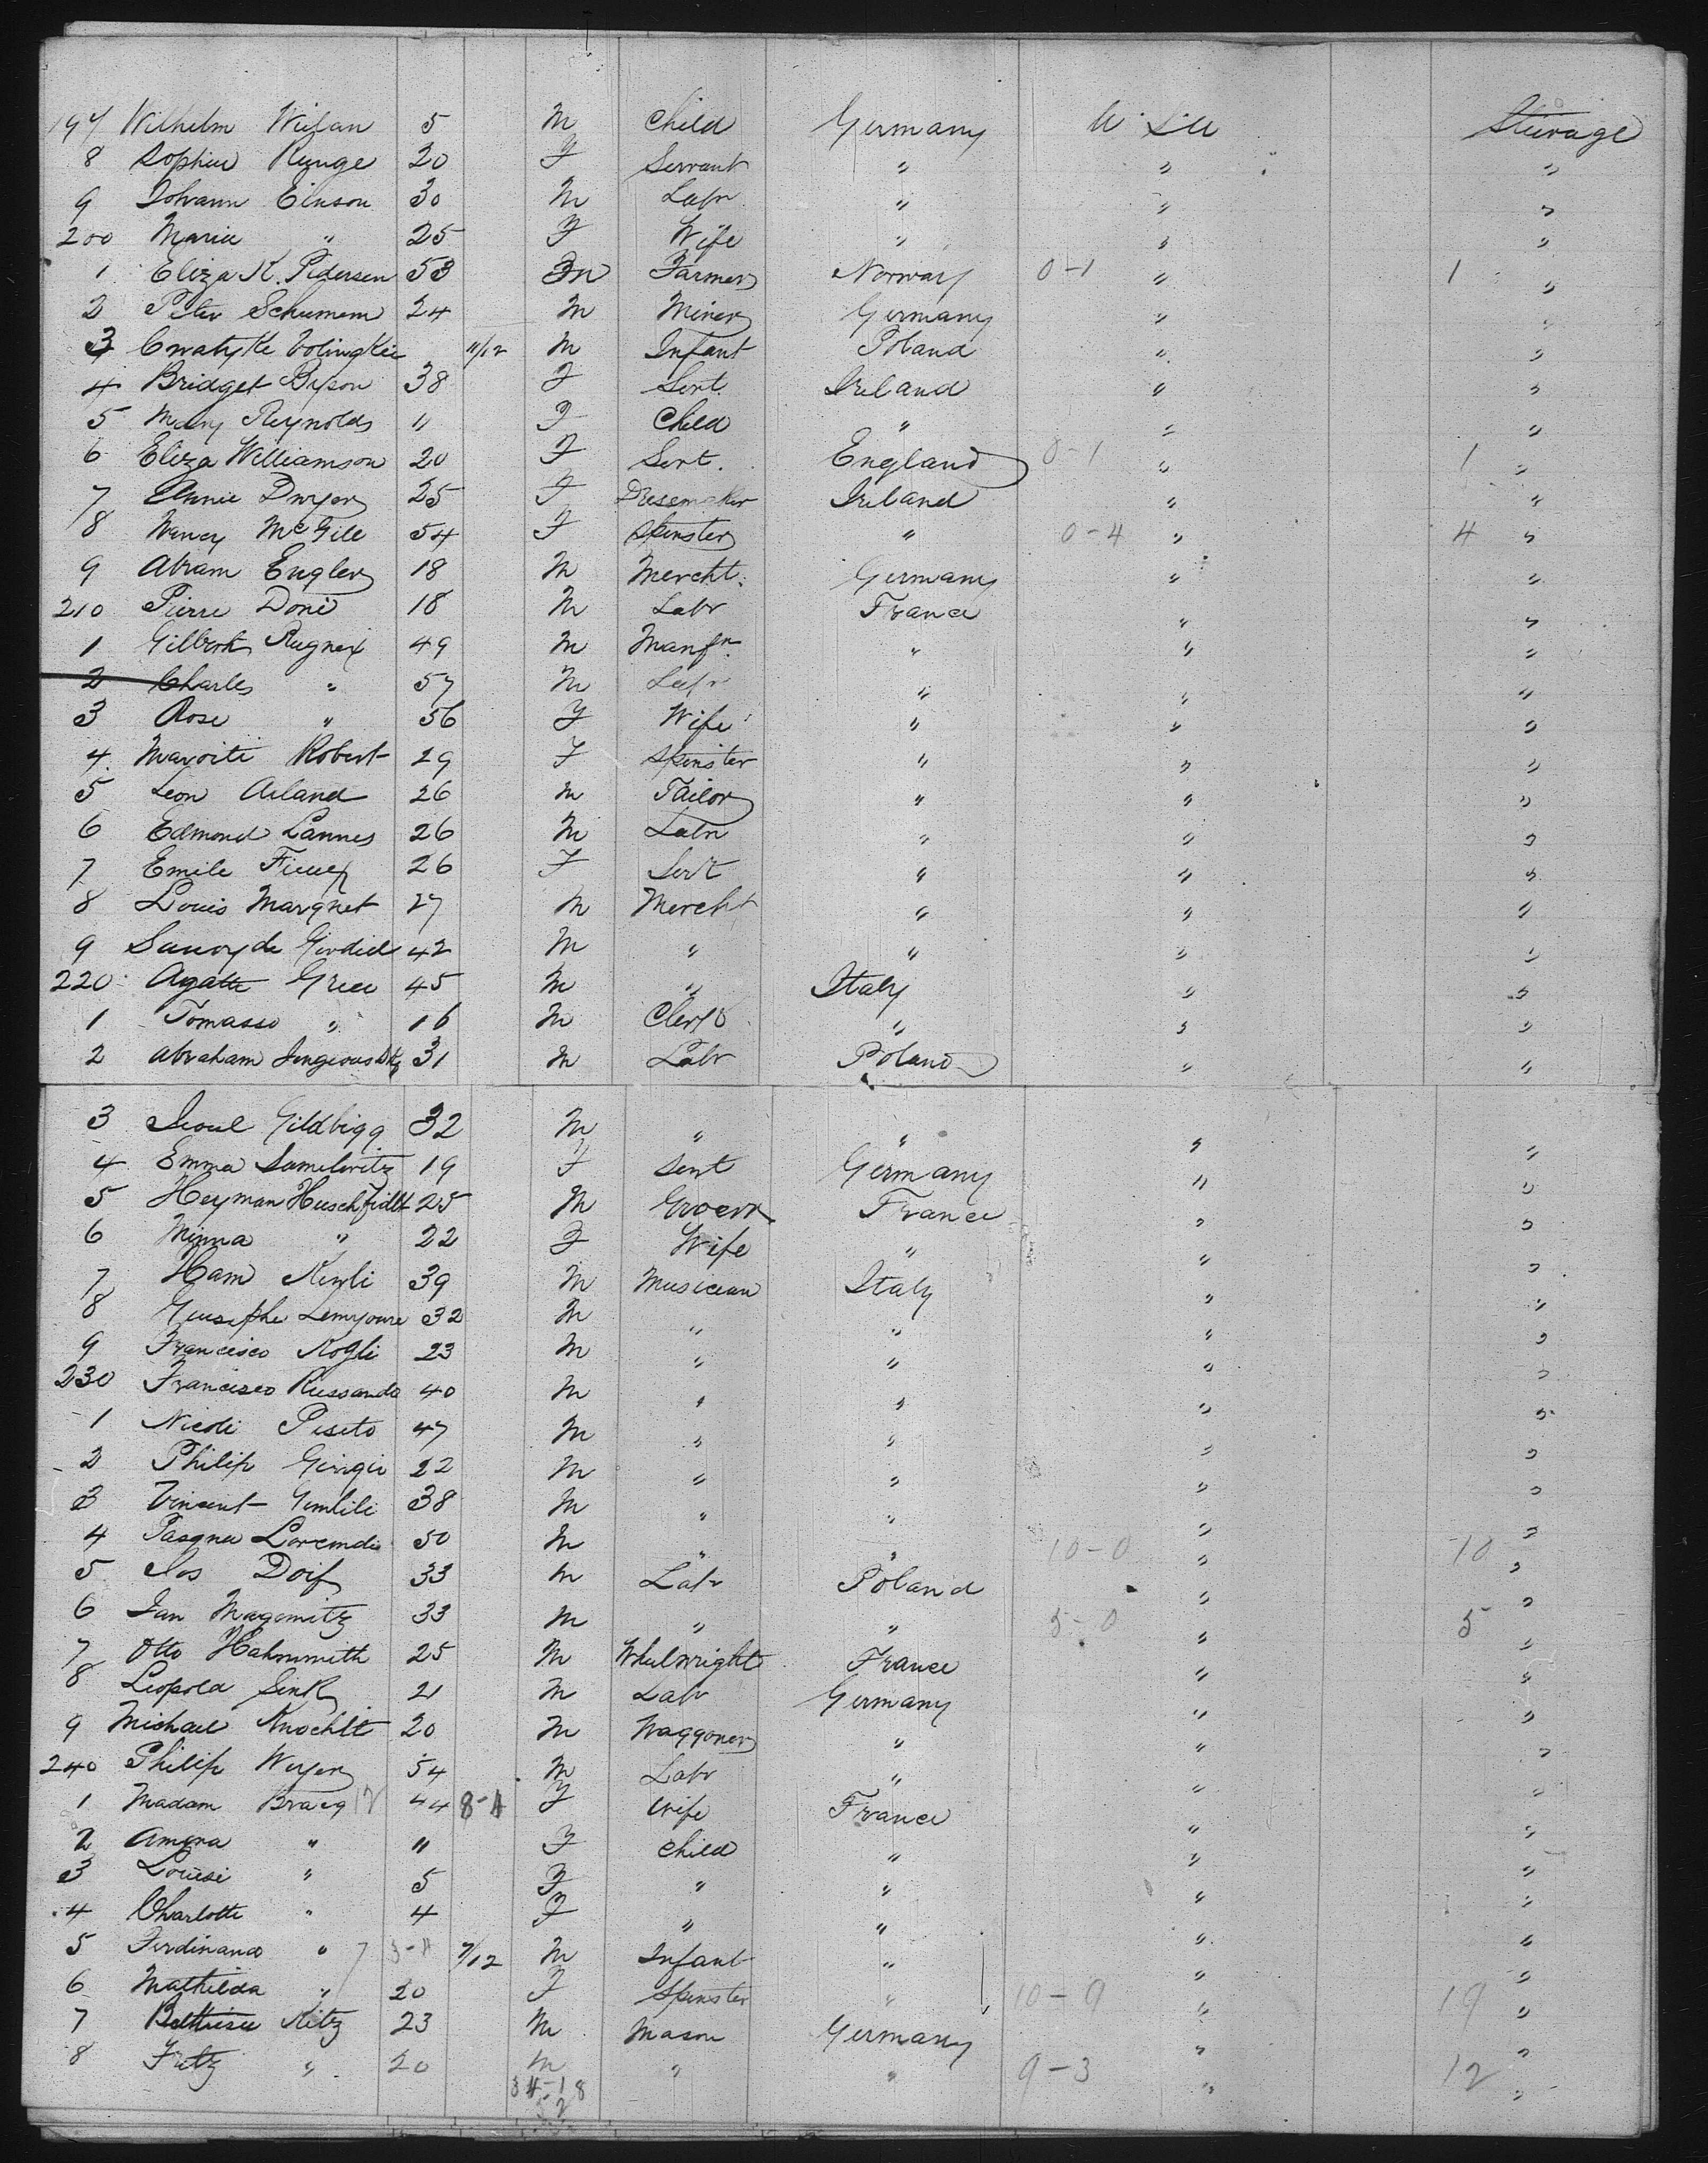 197 Wilhelm Wiefan 5 M Child Germany U. S. A Steerage
8 Sophie Runge 20 F Servant " " "
9 Johann Einson 30 M Labr " " "
200 Maria " 25 F Wife " " "
1 Eliza K. Pedersen 53 M Farmer Norway 0-1 " 1 "
2 Peter Schumem 24 M Miner Germany " "
3 11/12 M Infant Poland " "
4 Bridget Byson 38 F Servt. Ireland " "
5 Mary Reynolds 11 F Child " " "
6 Eliza Williamson 20 F Servt. England 0-1 " 1 "
7 Annie Dwyer 25 F Dressmaker Ireland " "
8 Nancy McGill 54 F Spinster " 0-4 " 4 "
9 Abram Engler 18 M Mercht. Germany " "
210 Pierre Doni 18 M Labr France " "
1 Gilbert Rugnex 49 M Manfr. " " "
2 Charles " 57 M Labr " " "
3 Rose " 56 F Wife " " "
4. Maroiti Robert 29 F Spinster " " "
5 Leon Arland 26 M Tailor " " "
6 Edmond Lannes 26 M Labr " " "
7 Emile 26 F Servt " " "
8 Louis Marqnet 27 M Mercht " " "
9 42 M " " " "
220 Agatte Grece 45 M " Italy " "
1 Tomasso " 16 M Clerk " " "
2 Abraham 31 M Labr Poland " "
3 Gildbigg 32 M " " " "
4 Emma Samelwitz 19 F Servt Germany " "
5 Heyman Huschfidlt 25 M Grocer France " "
6 Minna " 22 F Wife " " "
7 Ham 39 M Musician Italy " "
8 Giusephe 32 M " " " "
9 Francisco Rogli 23 M " " " "
230 Francisco Russando 40 M " " " "
1 Nicoli Peseto 47 M " " " "
2 Philip Giorgio 22 M " " " "
3 Vincent Gimlili 38 M " " " "
4 Pasqna 50 M " " 10-0 " 10 "
5 Jos Doif 33 M Labr Poland " "
6 Jan Magomitz 33 M " " 5-0 " 5 "
7 Otto Hahnsmith 25 M Wheelwright France " "
8 Leopold 21 M Labr Germany " "
9 Michael Knochlt 20 M Waggoner " " "
240 Philip Weyer 54 M Labr " " "
1 Madam Bracq 12 44 8-A F Wife France " "
2 Amena " 11 F Child " " "
3 Louise " 5 F " " " "
4 Charlotte " 4 F " " " "
5 Ferdinand " 7 3-A 7/12 M Infant " " "
6 Mathilda " 20 F Spinster " 10-9 " 19 "
7 Ritz 23 M Mason Germany " "
8 Fritz " 20 M " " 9-3 " 12 "
34-18